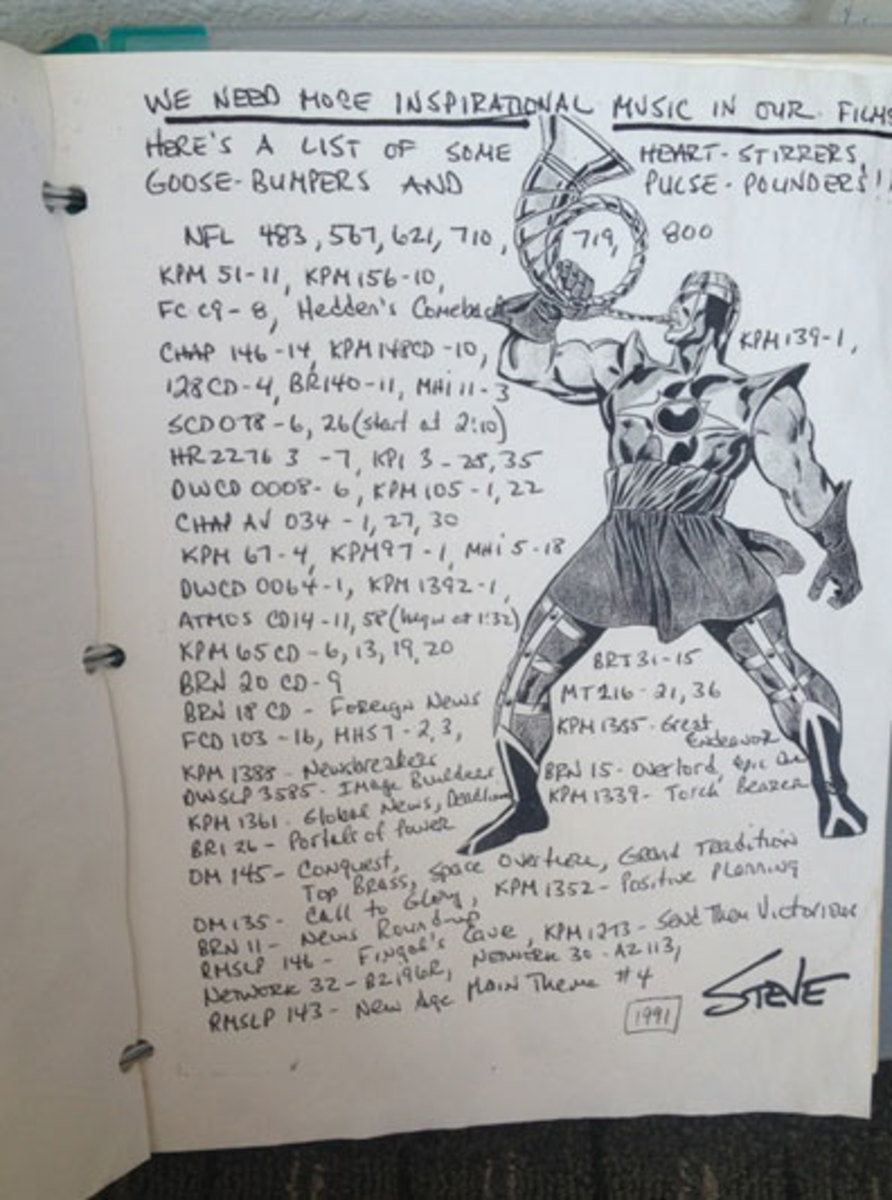 WE NEED MORE INSPIRATIONAL MUSIC IN OUR FILMS
HERE'S A LIST OF SOME HEART-STIRRERS,
GOOSE-BUMPERS AND PULSE-POUNDERS!!
NFL 483, 567, 621, 710, 719, 800
KPM 51-11, KPM 156-10,
FC C9-8, Hedden's Comeback
KPM 139-1,
CHAP 146-14, KPM 148CD-10,
128CD-4, BR140-11, MHi 11-3
SCD078-6, 26 (start at 2:10)
HR2276 3-7, KPI 3-28, 35
DWCD 0008-6, KPM 105-1, 22
CHAP AV 034-1, 27, 30
KPM 67-4, KPM97-1, MHi 5-18
DWCD 0064-1, KPM 1392-1,
ATMOS CD14-11, 58 (begin at 1:32)
KPM 65CD-6, 13, 19, 20
BRN 20 CD-9
BRN 18 CD - Foreign News
FCD 103-16, MHS7-2, 3,
KPM 1388 - Newsbreakers
DWSLP 3585 - Image Builders
KPM 1361 - Global News, Deadline
BR1 26 - Portals of Power
BRT31-15
MT216-21, 36
KPM 1385 - Great
Endeavor
BRN 15 - Overlord, Epic
KPM 1339 - Torch Bearer
OM 145 - Conquest,
Top Brass, Space Overture, Grand Tradition
OM 135 - Call to Glory, KPM 1352 - Positive Planning
BRN 11 - News Roundup
RMSLP 146 - Fingal's Cave, KPM 1273 - Send Them Victorious
NETWORK 32 - B2196R, NETWORK 30 - AZ113,
RMSLP 143 - New Age Main Theme #4
1991
STEVE